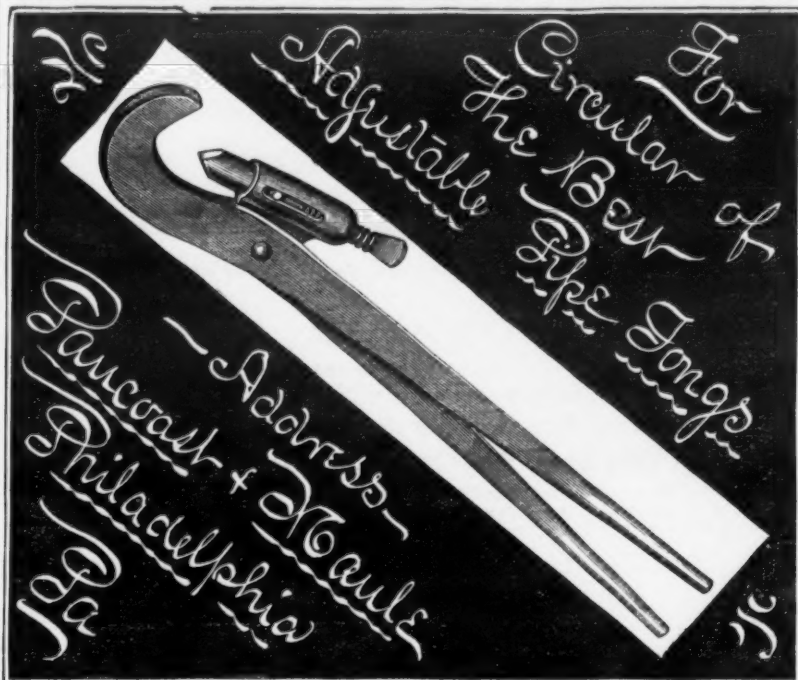 For
Circular of
The Best
Adjustable Pipe Tongs
– Address –
Pancoast + Maule
Philadelphia
Pa